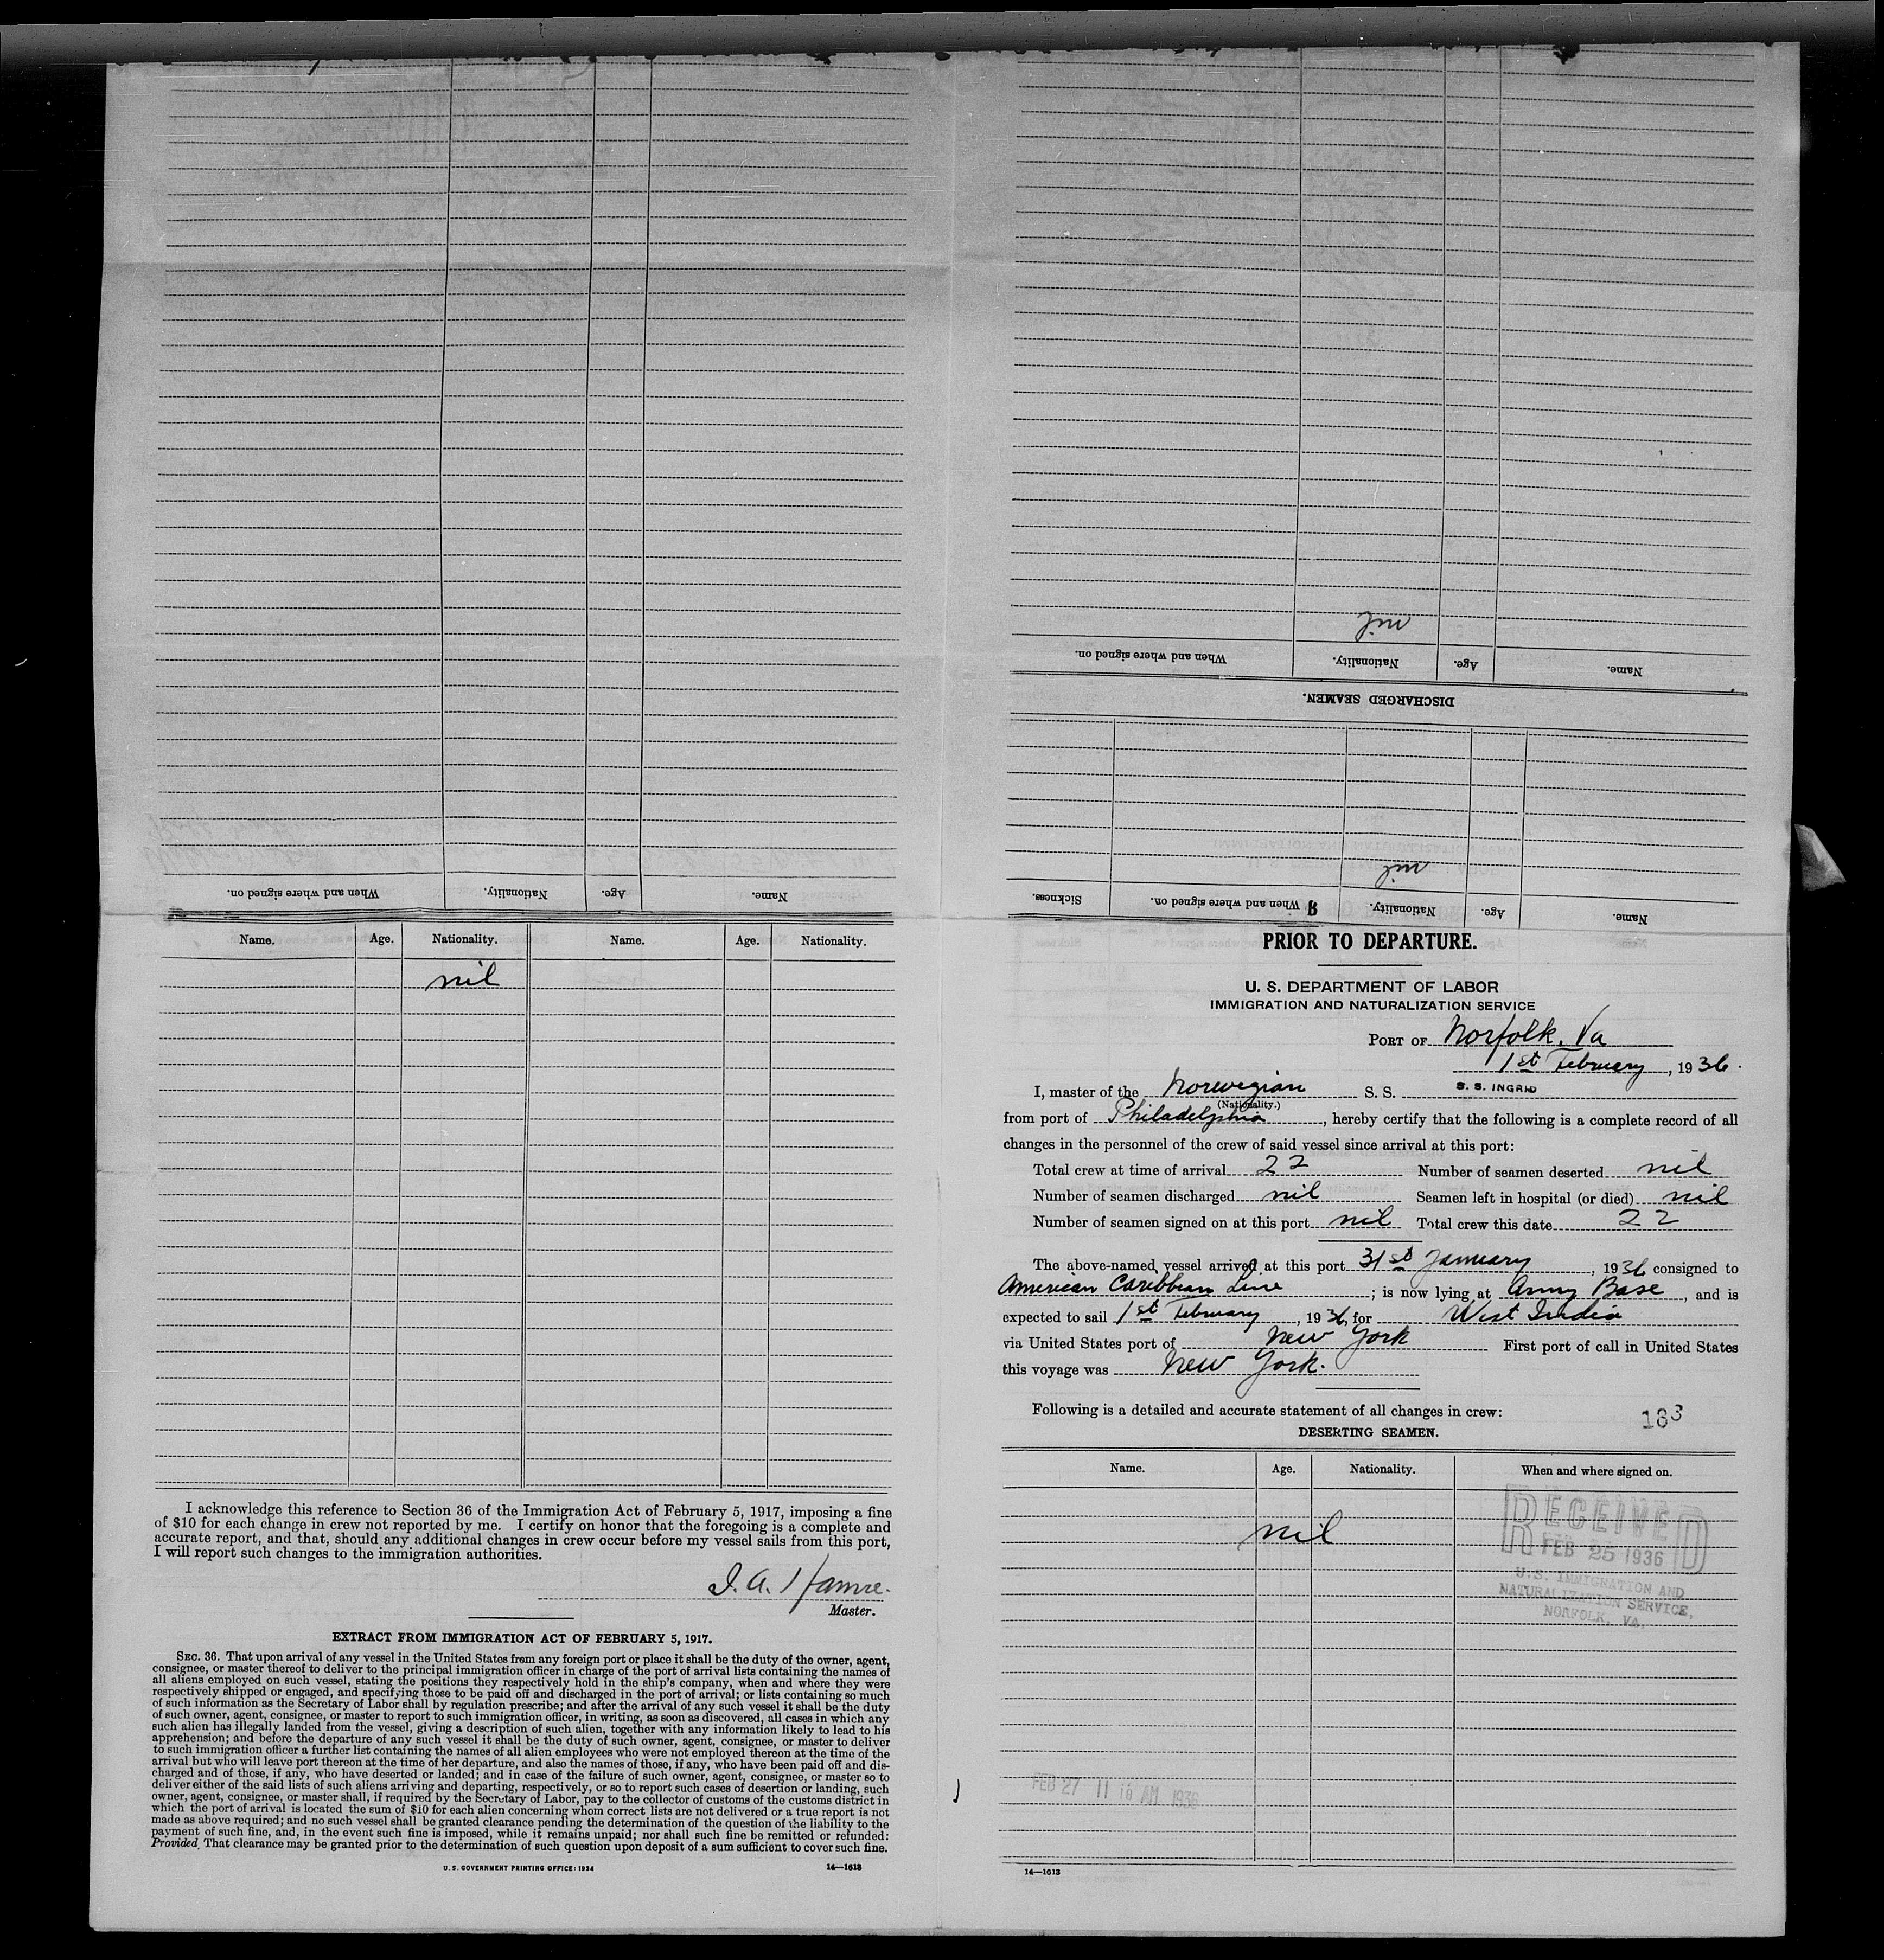 When and where signed on.
Nationality.
Age.
Name.
Name. Age. Nationality. Name. Age. Nationality.
nil
I acknowledge this reference to Section 36 of the Immigration Act of February 5, 1917, imposing a fine
of $10 for each change in crew not reported by me. I certify on honor that the foregoing is a complete and
accurate report, and that, should any additional changes in crew occur before my vessel sails from this port,
I will report such changes to the immigration authorities.
Master.
EXTRACT FROM IMMIGRATION ACT OF FEBRUARY 5, 1917.
SEC. 36. That upon arrival of any vessel in the United States from any foreign port or place it shall be the duty of the owner, agent,
consignee, or master thereof to deliver to the principal immigration officer in charge of the port of arrival lists containing the names of
all aliens employed on such vessel, stating the positions they respectively hold in the ship's company, when and where they were
respectively shipped or engaged, and specifying those to be paid off and discharged in the port of arrival; or lists containing so much
of such information as the Secretary of Labor shall by regulation prescribe; and after the arrival of any such vessel it shall be the duty
of such owner, agent, consignee, or master to report to such immigration officer, in writing, as soon as discovered, all cases in which any
such alien has illegally landed from the vessel, giving a description of such alien, together with any information likely to lead to his
apprehension; and before the departure of any such vessel it shall be the duty of such owner, agent, consignee, or master to deliver
to such immigration officer a further list containing the names of all alien employees who were not employed thereon at the time of the
arrival but who will leave port thereon at the time of her departure, and also the names of those, if any, who have been paid off and dis-
charged and of those, if any, who have deserted or landed; and in case of the failure of such owner, agent, consignee, or master so to
deliver either of the said lists of such aliens arriving and departing, respectively, or so to report such cases of desertion or landing, such
owner, agent, consignee, or master shall, if required by the Secretary of Labor, pay to the collector of customs of the customs district in
which the port of arrival is located the sum of $10 for each alien concerning whom correct lists are not delivered or a true report is not
made as above required; and no such vessel shall be granted clearance pending the determination of the question of the liability to the
payment of such fine, and, in the event such fine is imposed, while it remains unpaid; nor shall such fine be remitted or refunded:
Provided, That clearance may be granted prior to the determination of such question upon deposit of a sum sufficient to cover such fine.
U. S. GOVERNMENT PRINTING OFFICE: 1934 14—1613
nil
When and where signed on. Nationality. Age. Name.
DISCHARGED SEAMEN.
nil
Sickness. When and where signed on. Nationality. Age. Name.
PRIOR TO DEPARTURE.
U. S. DEPARTMENT OF LABOR
IMMIGRATION AND NATURALIZATION SERVICE
PORT OF Norfolk, Va
1st February, 1936.
I, master of the Norwegian S. S. S. S. INGRID
(Nationality.)
from port of Philadelphia, hereby certify that the following is a complete record of all
changes in the personnel of the crew of said vessel since arrival at this port:
Total crew at time of arrival 22 Number of seamen deserted nil
Number of seamen discharged nil Seamen left in hospital (or died) nil
Number of seamen signed on at this port nil Total crew this date 22
The above-named vessel arrived at this port 31st January, 1936 consigned to
American Caribbean Line; is now lying at Army Base, and is
expected to sail 1st February, 1936, for West India
via United States port of New York First port of call in United States
this voyage was New York.
Following is a detailed and accurate statement of all changes in crew:
183
DESERTING SEAMEN.
Name. Age. Nationality. When and where signed on.
nil
RECEIVED
FEB 25 1936
U.S. IMMIGRATION AND
NATURALIZATION SERVICE,
NORFOLK, VA.
FEB 27 11 16 AM 1936
14—1613